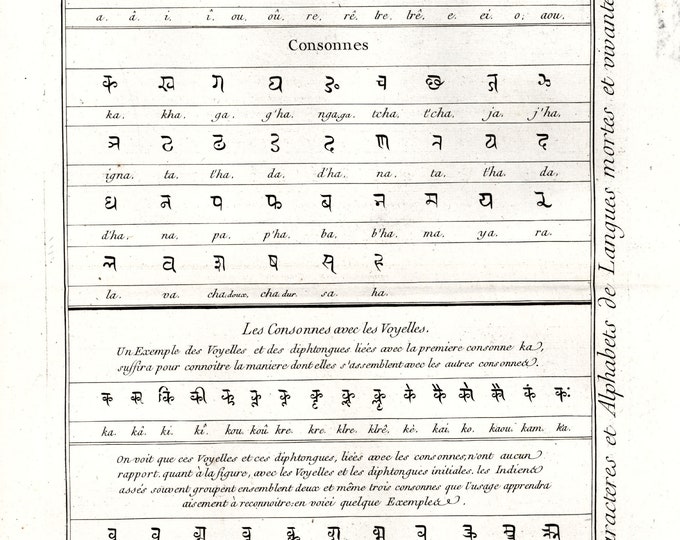 a. â. i. î. ou. oû. re. rê. lre. lrê. e. ei. o. aou.
Consonnes
क ख ग घ ङ च छ ज झ
ka. kha. ga. g'ha. ngaga. tcha. t'cha. ja. j'ha.
ञ ट ठ ड ढ ण त थ द
igna. ta. t'ha. da. d'ha. na. ta. t'ha. da.
ध न प फ ब म य र
d'ha. na. pa. p'ha. ba. b'ha. ma. ya. ra.
ल व श ष स ह
la. va. cha doux, cha dur. sa. ha.
Les Consonnes avec les Voyelles.
Un Exemple des Voyelles et des diphtongues liées avec la premiere consonne ka,
suffira pour connoitre la maniere dont elles s'assemblent avec les autres consonnes.
क का कि की कु कू कृ के कै को कौ कं कः
ka. kâ. ki. kî. kou. koû. kre. kre. klre. klrê. kè. kai. ko. kaou. kam. ka.
On voit que ces Voyelles et ces diphtongues, liées avec les consonnes, n'ont aucun
rapport quant à la figure, avec les Voyelles et les diphtongues initiales. les Indiens
assés souvent groupent ensemblent deux et même trois consonnes que l'usage apprendra
aisement à reconnoitre: en voici quelque Exemples.
aracteres et Alphabets de Langues mortes et vivante